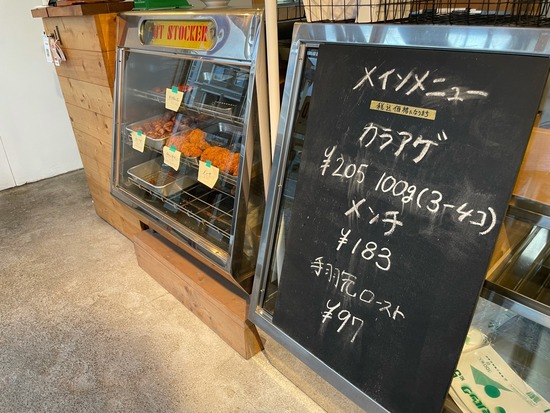 HOT STOCKER
メインメニュー
カラアゲ
¥205 100g(3-4コ)
メンチ
¥183
手羽先ロースト
¥97